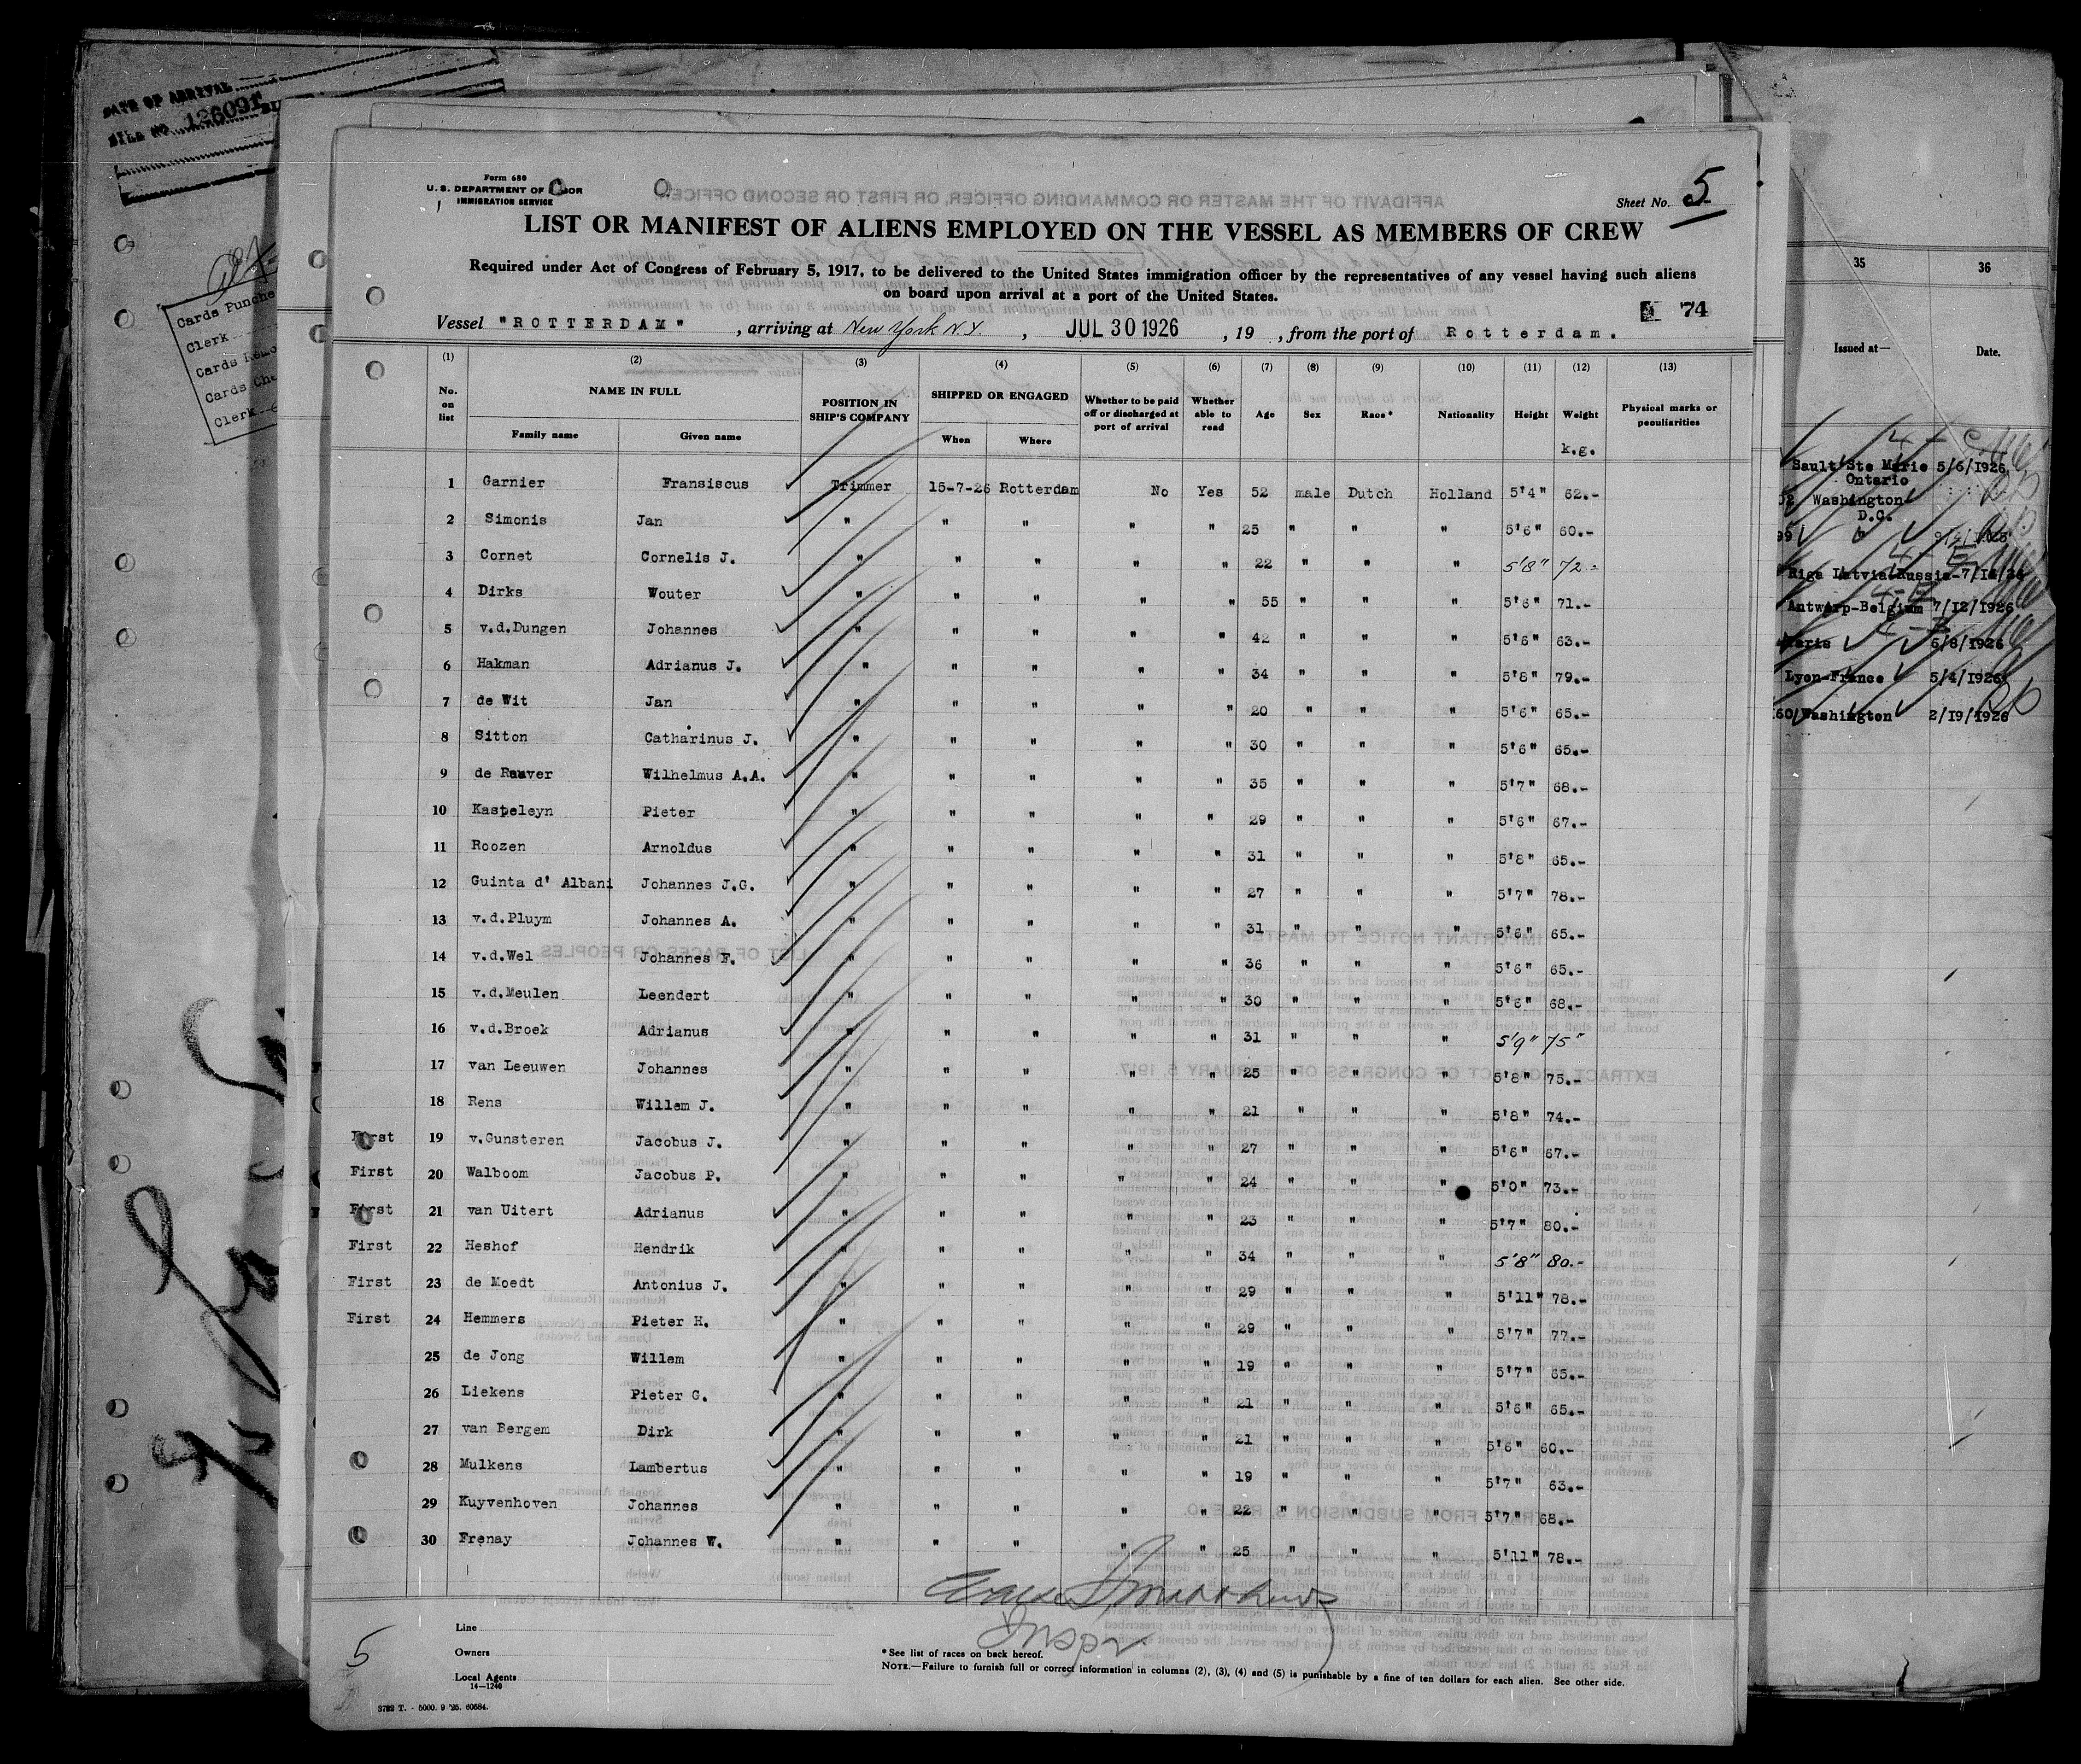 DATE OF ARRIVAL
FILE NO. 126091
Cards Punche
Clerk
Cards
Cards Che
Clerk
Form 680
U. S. DEPARTMENT OF LABOR
IMMIGRATION SERVICE
Sheet No. 5
LIST OR MANIFEST OF ALIENS EMPLOYED ON THE VESSEL AS MEMBERS OF CREW
Required under Act of Congress of February 5, 1917, to be delivered to the United States immigration officer by the representatives of any vessel having such aliens
on board upon arrival at a port of the United States.
74
Vessel "ROTTERDAM", arriving at New York N.Y., JUL 30 1926, 19 , from the port of Rotterdam.
(1) (2) (3) (4) (5) (6) (7) (8) (9) (10) (11) (12) (13)
No. on list NAME IN FULL Family name Given name POSITION IN SHIP'S COMPANY SHIPPED OR ENGAGED When Where Whether to be paid off or discharged at port of arrival Whether able to read Age Sex Race* Nationality Height Weight Physical marks or peculiarities
k.g.
1 Garnier Fransiscus Trimmer 15-7-26 Rotterdam No Yes 52 male Dutch Holland 5'4" 62.-
2 Simonis Jan " " " " " 25 " " " 5'6" 60.-
3 Cornet Cornelis J. " " " " " 22 " " " 5'8" 72-
4 Dirks Wouter " " " " " 55 " " " 5'6" 71.-
5 v.d.Dungen Johannes " " " " " 42 " " " 5'6" 63.-
6 Hakman Adrianus J. " " " " " 34 " " " 5'8" 79.-
7 de Wit Jan " " " " " 20 " " " 5'6" 65.-
8 Sitton Catharinus J. " " " " " 30 " " " 5'6" 65.-
9 de Rauver Wilhelmus A.A. " " " " " 35 " " " 5'7" 68.-
10 Kasteleyn Pieter " " " " " 29 " " " 5'6" 67.-
11 Roozen Arnoldus " " " " " 31 " " " 5'8" 65.-
12 Guinta d' Albani Johannes J.G. " " " " " 27 " " " 5'7" 78.-
13 v.d.Pluym Johannes A. " " " " " 31 " " " 5'6" 65.-
14 v.d.Wel Johannes F. " " " " " 36 " " " 5'6" 65.-
15 v.d.Meulen Leendert " " " " " 30 " " " 5'6" 68.-
16 v.d.Broek Adrianus " " " " " 31 " " " 5'9" 75"
17 van Leeuwen Johannes " " " " " 25 " " " 5'8" 75.-
18 Rens Willem J. " " " " " 21 " " " 5'8" 74.-
First 19 v.Gunsteren Jacobus J. " " " " " 27 " " " 5'6" 67.-
First 20 Walboom Jacobus P. " " " " " 24 " " " 5'0" 73.-
First 21 van Uitert Adrianus " " " " " 23 " " " 5'7" 80.-
First 22 Heshof Hendrik " " " " " 34 " " " 5'8" 80.-
First 23 de Moedt Antonius J. " " " " " 29 " " " 5'11" 78.-
First 24 Hemmers Pieter H. " " " " " 29 " " " 5'7" 77.-
25 de Jong Willem " " " " " 19 " " " 5'7" 65.-
26 Liekens Pieter G. " " " " " 21 " " " 5'6" 65.-
27 van Bergem Dirk " " " " " 21 " " " 5'6" 60.-
28 Mulkens Lambertus " " " " " 19 " " " 5'7" 63.-
29 Kuyvenhoven Johannes " " " " " 22 " " " 5'7" 68.-
30 Frenay Johannes W. " " " " " 25 " " " 5'11" 78.-
Inspr.
Line
Owners
Local Agents
14—1240
5
*See list of races on back hereof.
NOTE.—Failure to furnish full or correct information in columns (2), (3), (4) and (5) is punishable by a fine of ten dollars for each alien. See other side.
3782 T. - 5000. 9 '25. 60584.
35 36
Issued at— Date.
Sault Ste Marie 5/6/1926
Ontario
Washington
D.C.
Riga Latvia Russia-7/
Antwerp-Belgium 7/12/1926
Paris 6/8/1926
Lyon-France 5/4/1926
60 Washington 2/19/1926